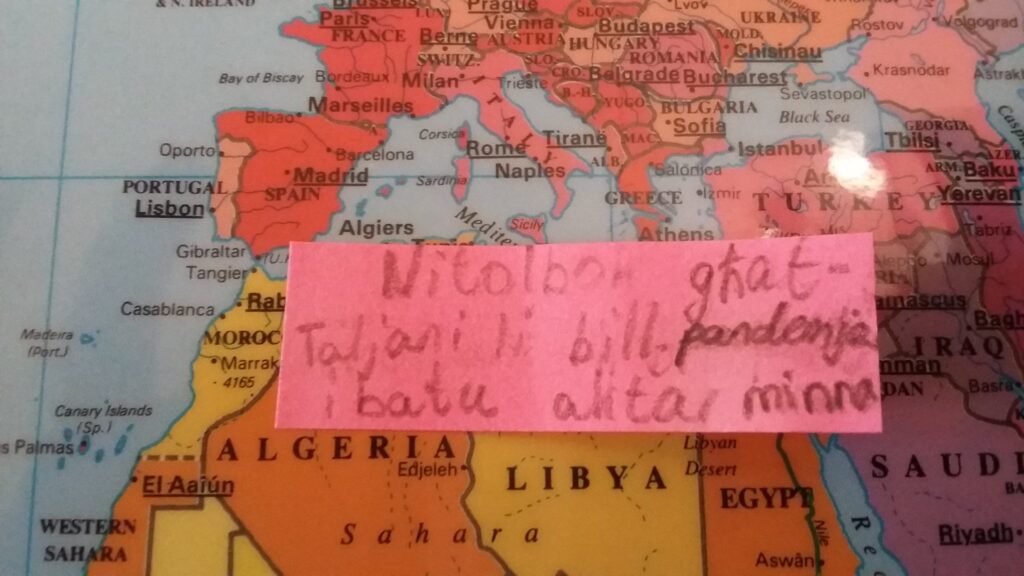 & N. IRELAND
Brussels
Prague
Lvov
UKRAINE
Volgograd
Paris
LUX.
SLOV.
Rostov
FRANCE
Vienna
Budapest
MOLD.
Berne
AUSTRIA
HUNGARY
Chisinau
SWITZ.
SLO.
ROMANIA
Krasnodar
Bay of Biscay
Bordeaux
Milan
Trieste
CRO.
Belgrade
Bucharest
Sevastopol
Marseilles
B.-H.
YUGO.
BULGARIA
Black Sea
Bilbao
ITALY
Sofia
GEORGIA
Corsica
Rome
Tirané
MAC.
Istanbul
Tbilsi
Oporto
Barcelona
ALB.
Madrid
Sardinia
Naples
Salonica
ARM.
Baku
PORTUGAL
SPAIN
GREECE
Izmir
TURKEY
Yerevan
Lisbon
Sicily
Algiers
Athens
Tabriz
Gibraltar
Tangier
Mosul
għat-
Casablanca
Taljani li bill-pandemja
i batu aktar minna
Madeira
(Port.)
IRAQ
4165
Basra
Canary Islands
(Sp.)
ALGERIA
Edjeleh
LIBYA
Libyan
Desert
El Aaiún
EGYPT
WESTERN
SAHARA
Sahara
Nile
Riyadh
Aswân